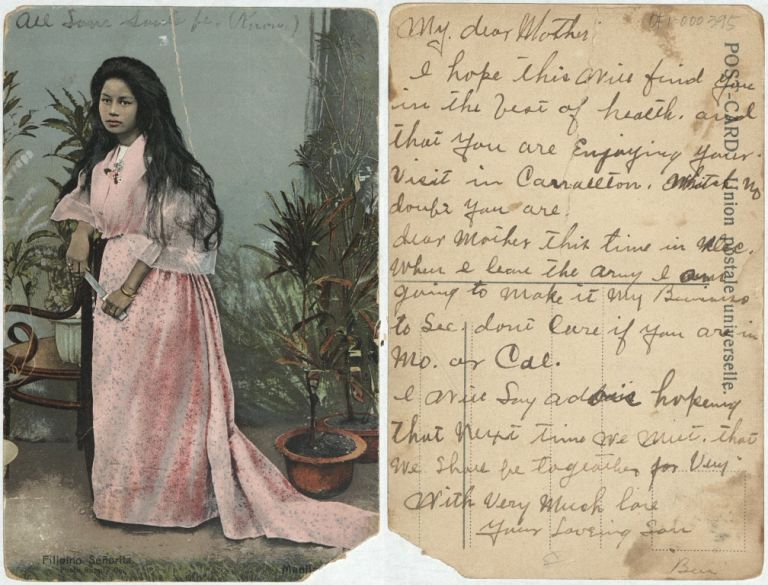 All Sane
Filipino Señorita.
Photo Supply Co.
Manila
DF1-000395
POST-CARD. Union postale universelle.
My. dear Mother
I hope this Will find you
in the best of health. and
that you are Enjoying your.
Visit in Carrollton. no
doubt you are.
dear Mother this time in Dec.
When I leave the army I am
going to make it my Buisines
to See. dont Care if you are in
Mo. or Cal.
I Will Say hopeing
that Next time We Meet. that
We Shall be togeather for Very
With Very Much love
Your Loveing Son
Ben